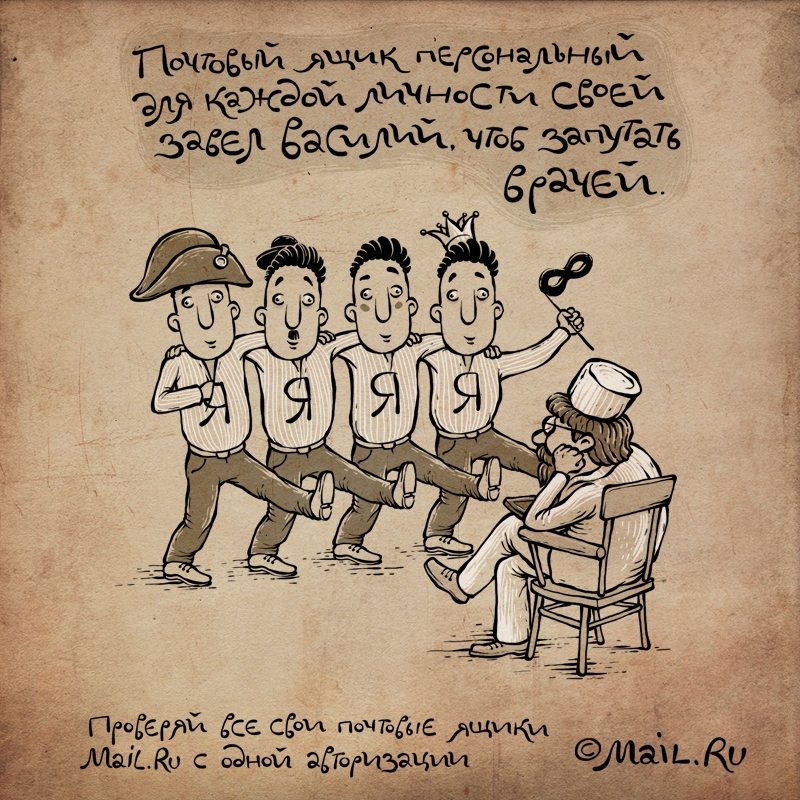 Почтовый ящик персональный
для каждой личности своей
завел Василий, чтоб запутать
врачей.
Я Я Я Я
Проверяй все свои почтовые ящики
Mail.Ru с одной авторизации
©Mail.Ru